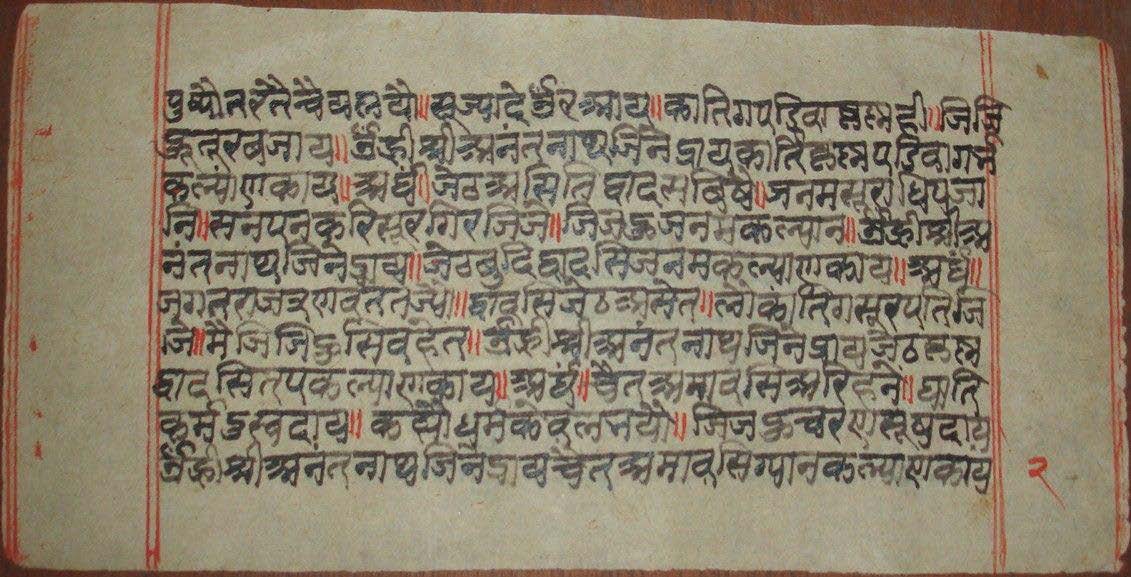 पुष्पोतरतैचैयलयौ॥सूज्यादेउरआय॥कातिगपडिवाकृष्णही॥जिजि
हुतूरबजाय॥ॐह्रीश्रीअनंतनाथजिनेंद्रायकार्तिककृष्णपडिवागर्भ
कल्याणकाय॥अर्घं॥जेठअसितिद्वादसिविषै॥जनमसूराधिपजा
नि॥सनपनकरिसूरगिरजिजे॥जिजहुजनमकल्यान॥ॐह्रीश्रीअ
नंतनाथजिनेंद्राय॥जेठबुदिद्वादसिजनमकल्याणकाय॥अर्घं॥
जगतराजत्रणवततज्यो॥द्वादसिजेठअसेत॥लोकांतिगसूरपतिजि
जे॥मैजिजिहुसिवहेत॥ॐह्रीश्रीअनंतनाथजिनेंद्रायजेठकृष्ण
द्वादसितपकल्याणकाय॥अर्घं॥चैतअमावसिअरिहने॥घाति
कर्मदुखदाय॥कह्योधर्मकेवलभयो॥जिजहुचरणसूषदाय
ॐह्रीश्रीअनंतनाथजिनेंद्रायचैतअमावसिग्यानकल्याणकाय
२